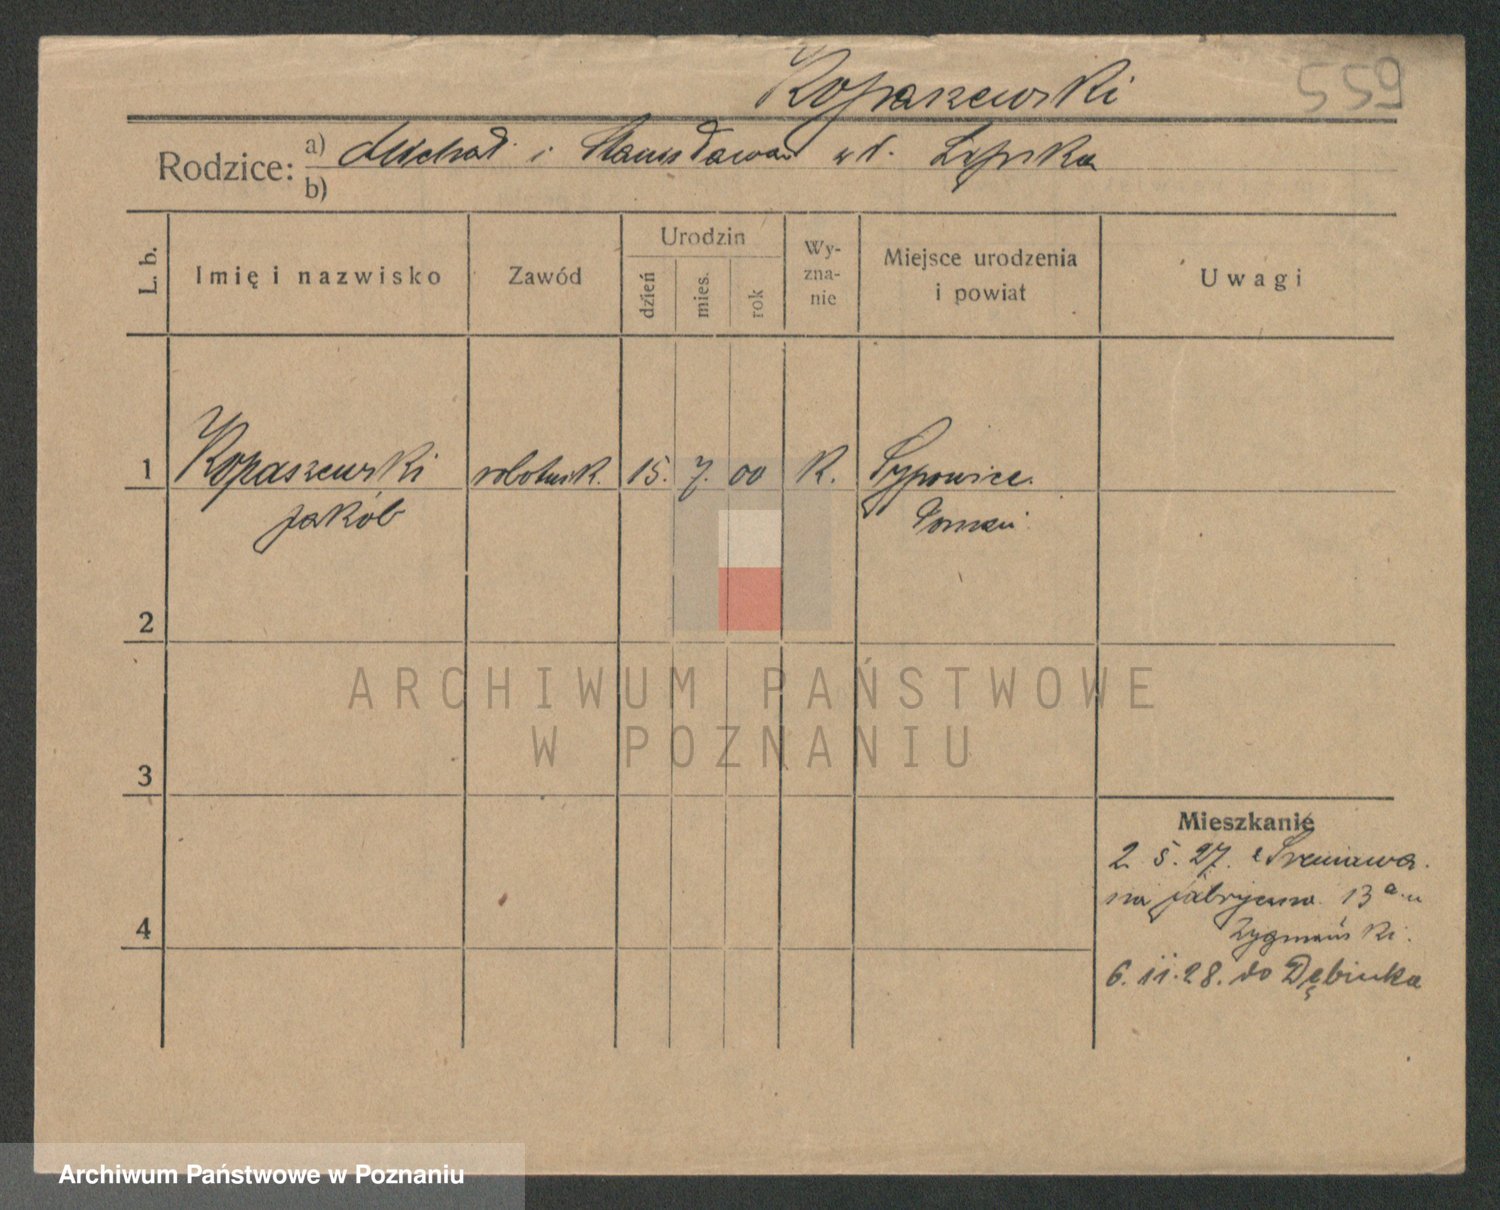 Kopaszewski
559
Rodzice: a) Michał i Stanisława z d. Lipska
b)
L. b.
Imię i nazwisko
Zawód
Urodzin
dzień
mies.
rok
Wy-
zna-
nie
Miejsce urodzenia
i powiat
Uwagi
1 Kopaszewski robotnik. 15. 7. 00 K.
Jakób
2
3
4
ARCHIWUM PAŃSTWOWE
W POZNANIU
Mieszkanie
2 5. 27. z Sreniawa.
na fabryczna 13a u
6. 11. 28. do Dębiuka
Archiwum Państwowe w Poznaniu